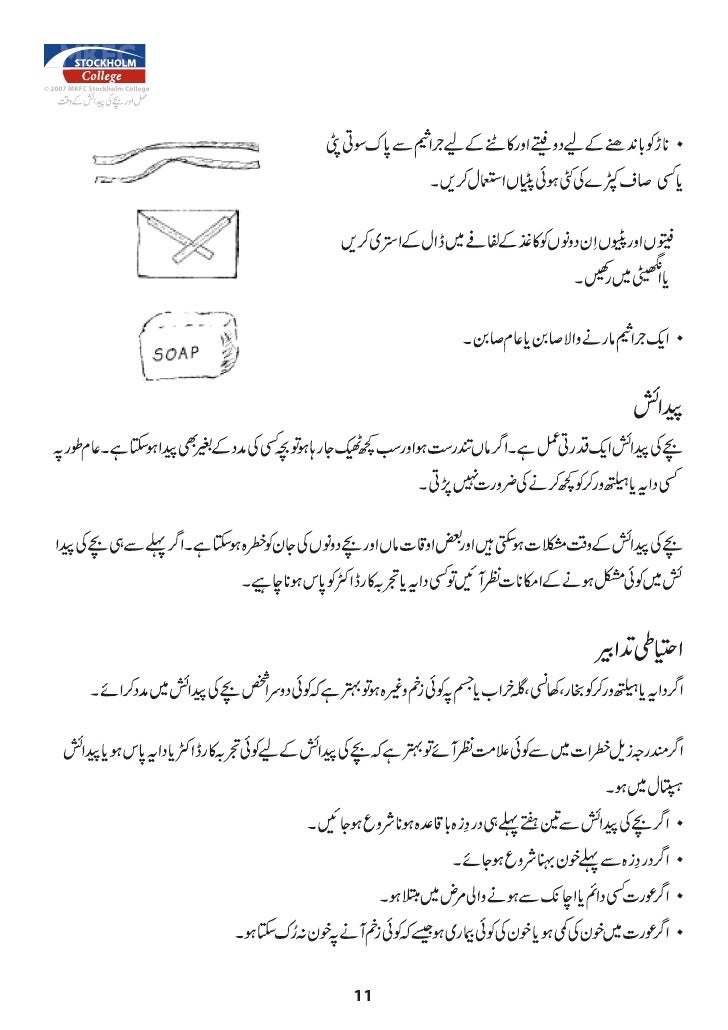 MKFC
STOCKHOLM
College
© 2007 MKFC Stockholm College
حمل اور بچے کی پیدائش کے وقت
• ناڑ کو باندھنے کے لیے دو فیتے اور کاٹنے کے لیے جراثیم سے پاک سوتی پٹی
یا کسی صاف کپڑے کی کٹی ہوئی پٹیاں استعمال کریں۔
فیتوں اور پٹیوں اِن دونوں کو کاغذ کے لفافے میں ڈال کے استری کریں
یا انگھیٹی میں رکھیں۔
SOAP
• ایک جراثیم مارنے والا صابن یا عام صابن۔
پیدائش
بچے کی پیدائش ایک قدرتی عمل ہے۔ اگر ماں تندرست ہو اور سب کچھ ٹھیک جا رہا ہو تو بچہ کسی کی مدد کے بغیر بھی پیدا ہو سکتا ہے۔ عام طور پہ
کسی دایہ یا ہیلتھ ورکر کو کچھ کرنے کی ضرورت نہیں پڑتی۔
بچے کی پیدائش کے وقت مشکلات ہو سکتی ہیں اور بعض اوقات ماں اور بچے دونوں کی جان کو خطرہ ہو سکتا ہے۔ اگر پہلے سے ہی بچے کی پیدا
ئش میں کوئی مشکل ہونے کے امکانات نظر آئیں تو کسی دایہ یا تجربہ کار ڈاکٹر کو پاس ہونا چاہیے۔
احتیاطی تدابیر
اگر دایہ یا ہیلتھ ورکر کو بخار، کھانسی، گلہ خراب یا جسم پہ کوئی زخم وغیرہ ہو تو بہتر ہے کہ کوئی دوسرا شخص بچے کی پیدائش میں مدد کرائے۔
اگر مندرجہ زیل خطرات میں سے کوئی علامت نظر آئے تو بہتر ہے کہ بچے کی پیدائش کے لیے کوئی تجربہ کار ڈاکٹر یا دایہ پاس ہو یا پیدائش
ہسپتال میں ہو۔
• اگر بچے کی پیدائش سے تین ہفتے پہلے ہی دردِزہ باقاعدہ ہونا شروع ہو جائیں۔
• اگر دردِزہ سے پہلے خون بہنا شروع ہو جائے۔
• اگر عورت کسی دائم یا اچانک سے ہونے والی مرض میں مبتلا ہو۔
• اگر عورت میں خون کی کمی ہو یا خون کی کوئی بیماری ہو جیسے کہ کوئی زخم آنے پہ خون نہ رُک سکتا ہو۔
11